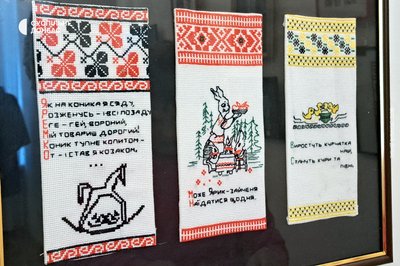 Як на коника я сяду,
Розженусь – і всі позаду
Еге-гей, вороний,
Мій товариш дорогий!
Коник тупне копитом –
От і став я козаком.
...
Може Ярик-зайченя
Наїдатися щодня.
Виростуть курчатка
Стануть кури та
півні.